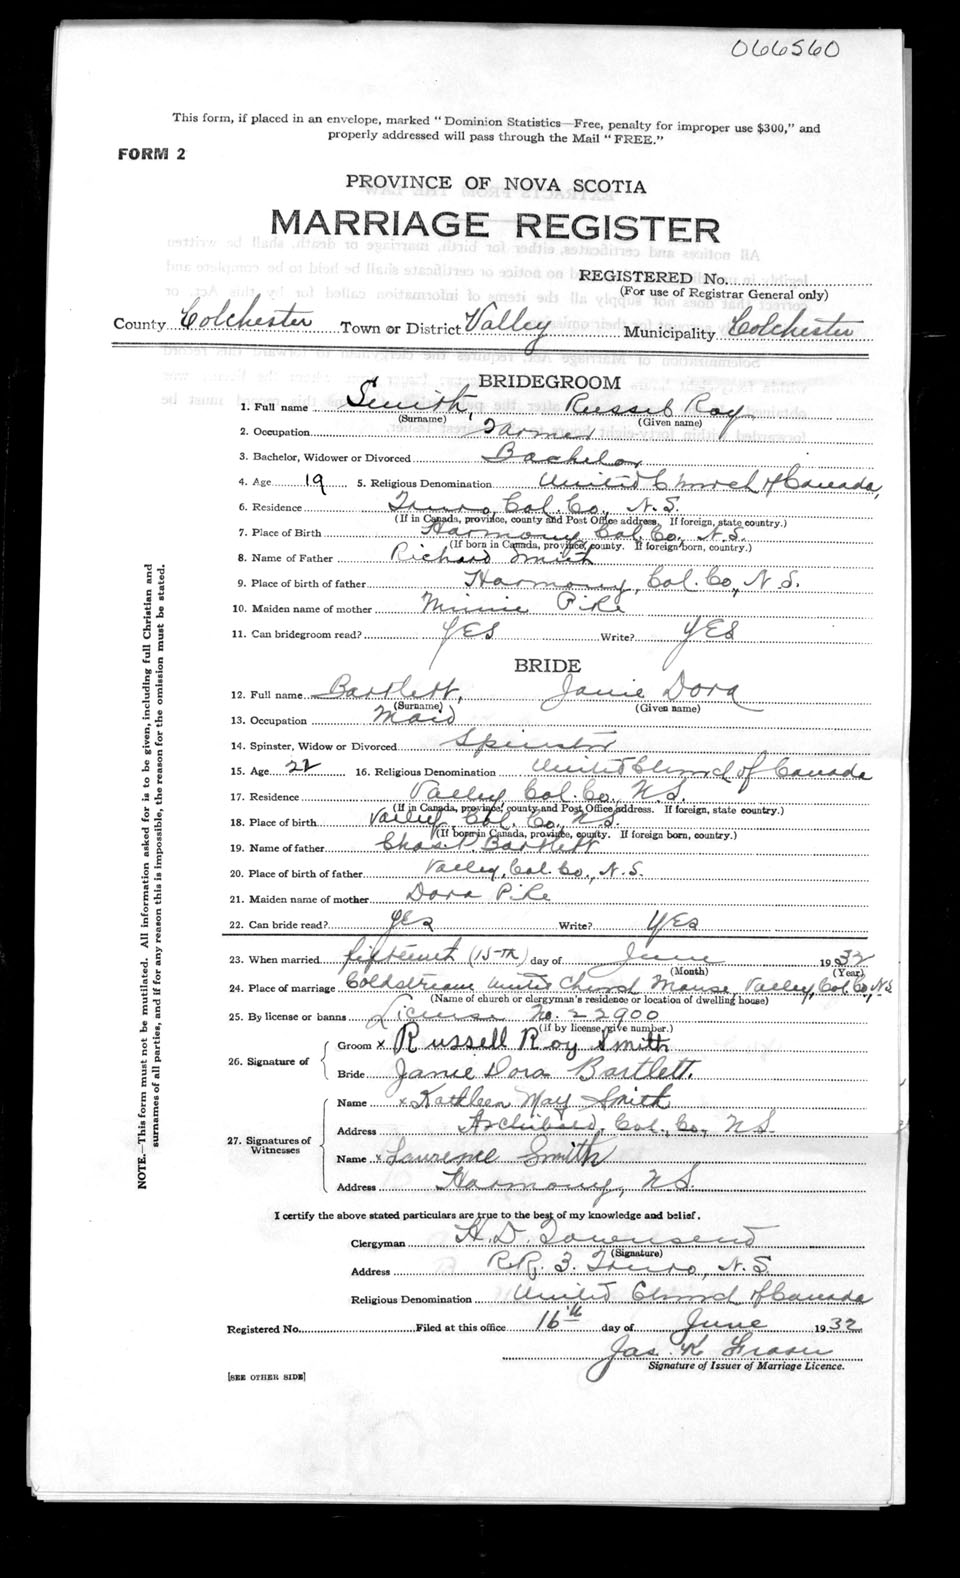 066560
This form, if placed in an envelope, marked "Dominion Statistics—Free, penalty for improper use $300," and
properly addressed will pass through the Mail "FREE."
FORM 2
PROVINCE OF NOVA SCOTIA
MARRIAGE REGISTER
REGISTERED No.
(For use of Registrar General only)
County Colchester Town or District Valley Municipality Colchester
BRIDEGROOM
1. Full name Smith, Russel Roy
(Surname) (Given name)
2. Occupation Farmer
3. Bachelor, Widower or Divorced Bachelor
4. Age 19 5. Religious Denomination United Church of Canada,
6. Residence Truro, Col. Co., N.S.
(If in Canada, province, county and Post Office address. If foreign, state country.)
7. Place of Birth Harmony, Col. Co., N.S.
(If born in Canada, province, county. If foreign born, country.)
8. Name of Father Richard Smith
9. Place of birth of father Harmony, Col. Co., N.S.
10. Maiden name of mother Minnie Pike
11. Can bridegroom read? YES Write? YES
BRIDE
12. Full name Bartlett, Janie Dora
(Surname) (Given name)
13. Occupation Maid
14. Spinster, Widow or Divorced Spinster
15. Age 22 16. Religious Denomination United Church of Canada
17. Residence Valley, Col. Co., N.S.
(If in Canada, province, county and Post Office address. If foreign, state country.)
18. Place of birth Valley, Col. Co., N.S.
(If born in Canada, province, county. If foreign born, country.)
19. Name of father Chas. Bartlett
20. Place of birth of father Valley, Col. Co., N.S.
21. Maiden name of mother Dora Pike
22. Can bride read? Yes Write? Yes
23. When married fifteenth (15-TH) day of June 1932
(Month) (Year)
24. Place of marriage Coldstream United Church Manse, Valley, Col. Co., N.S.
(Name of church or clergyman's residence or location of dwelling house)
25. By license or banns License No. 22900
(If by license, give number.)
26. Signature of
Groom x Russell Roy Smith
Bride Janie Dora Bartlett.
27. Signatures of Witnesses
Name x Kathleen May Smith
Address Archibald, Col., Co., N.S.
Name x Laurence Smith
Address Harmony, N.S.
I certify the above stated particulars are true to the best of my knowledge and belief.
Clergyman H. D. Townsend
(Signature)
Address R.R. 3. Truro, N.S.
Religious Denomination United Church of Canada
Registered No. Filed at this office 16th day of June 1932
Jas. K. Fraser
Signature of Issuer of Marriage Licence.
[SEE OTHER SIDE]
NOTE.—This form must not be mutilated. All information asked for is to be given, including full Christian and
surnames of all parties, and if for any reason this is impossible, the reason for the omission must be stated.